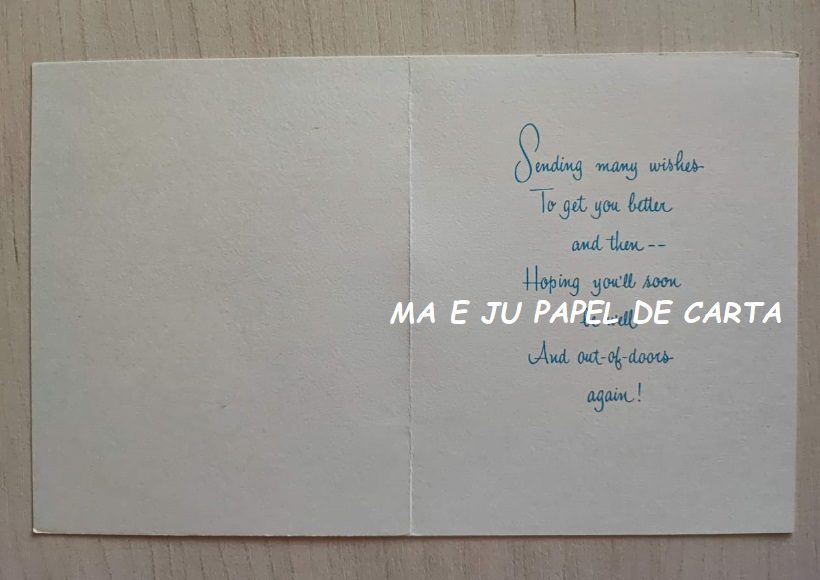 Sending many wishes
To get you better
and then--
Hoping you'll soon
be well
MA E JU PAPEL DE CARTA
And out-of-doors
again!